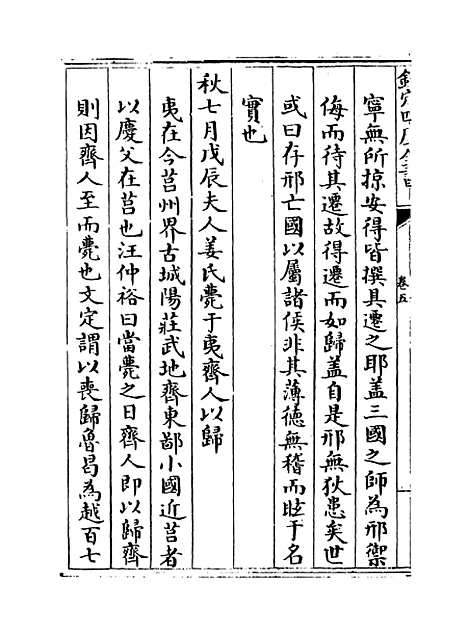 欽定四庫全書
卷五
寧無所掠安得皆撰具遷之耶盖三國之師為邢禦
侮而待其遷故得遷而如歸盖自是邢無狄患矣世
或曰存邢亡國以屬諸侯非其薄德無稽而眩于名
實也
秋七月戊辰夫人姜氏薨于夷齊人以歸
夷在今莒州界古城陽莊武地齊東鄙小國近莒者
以慶父在莒也汪仲裕曰當薨之日齊人即以歸齊
則因齊人至而薨也文定謂以喪歸魯曷為越百七